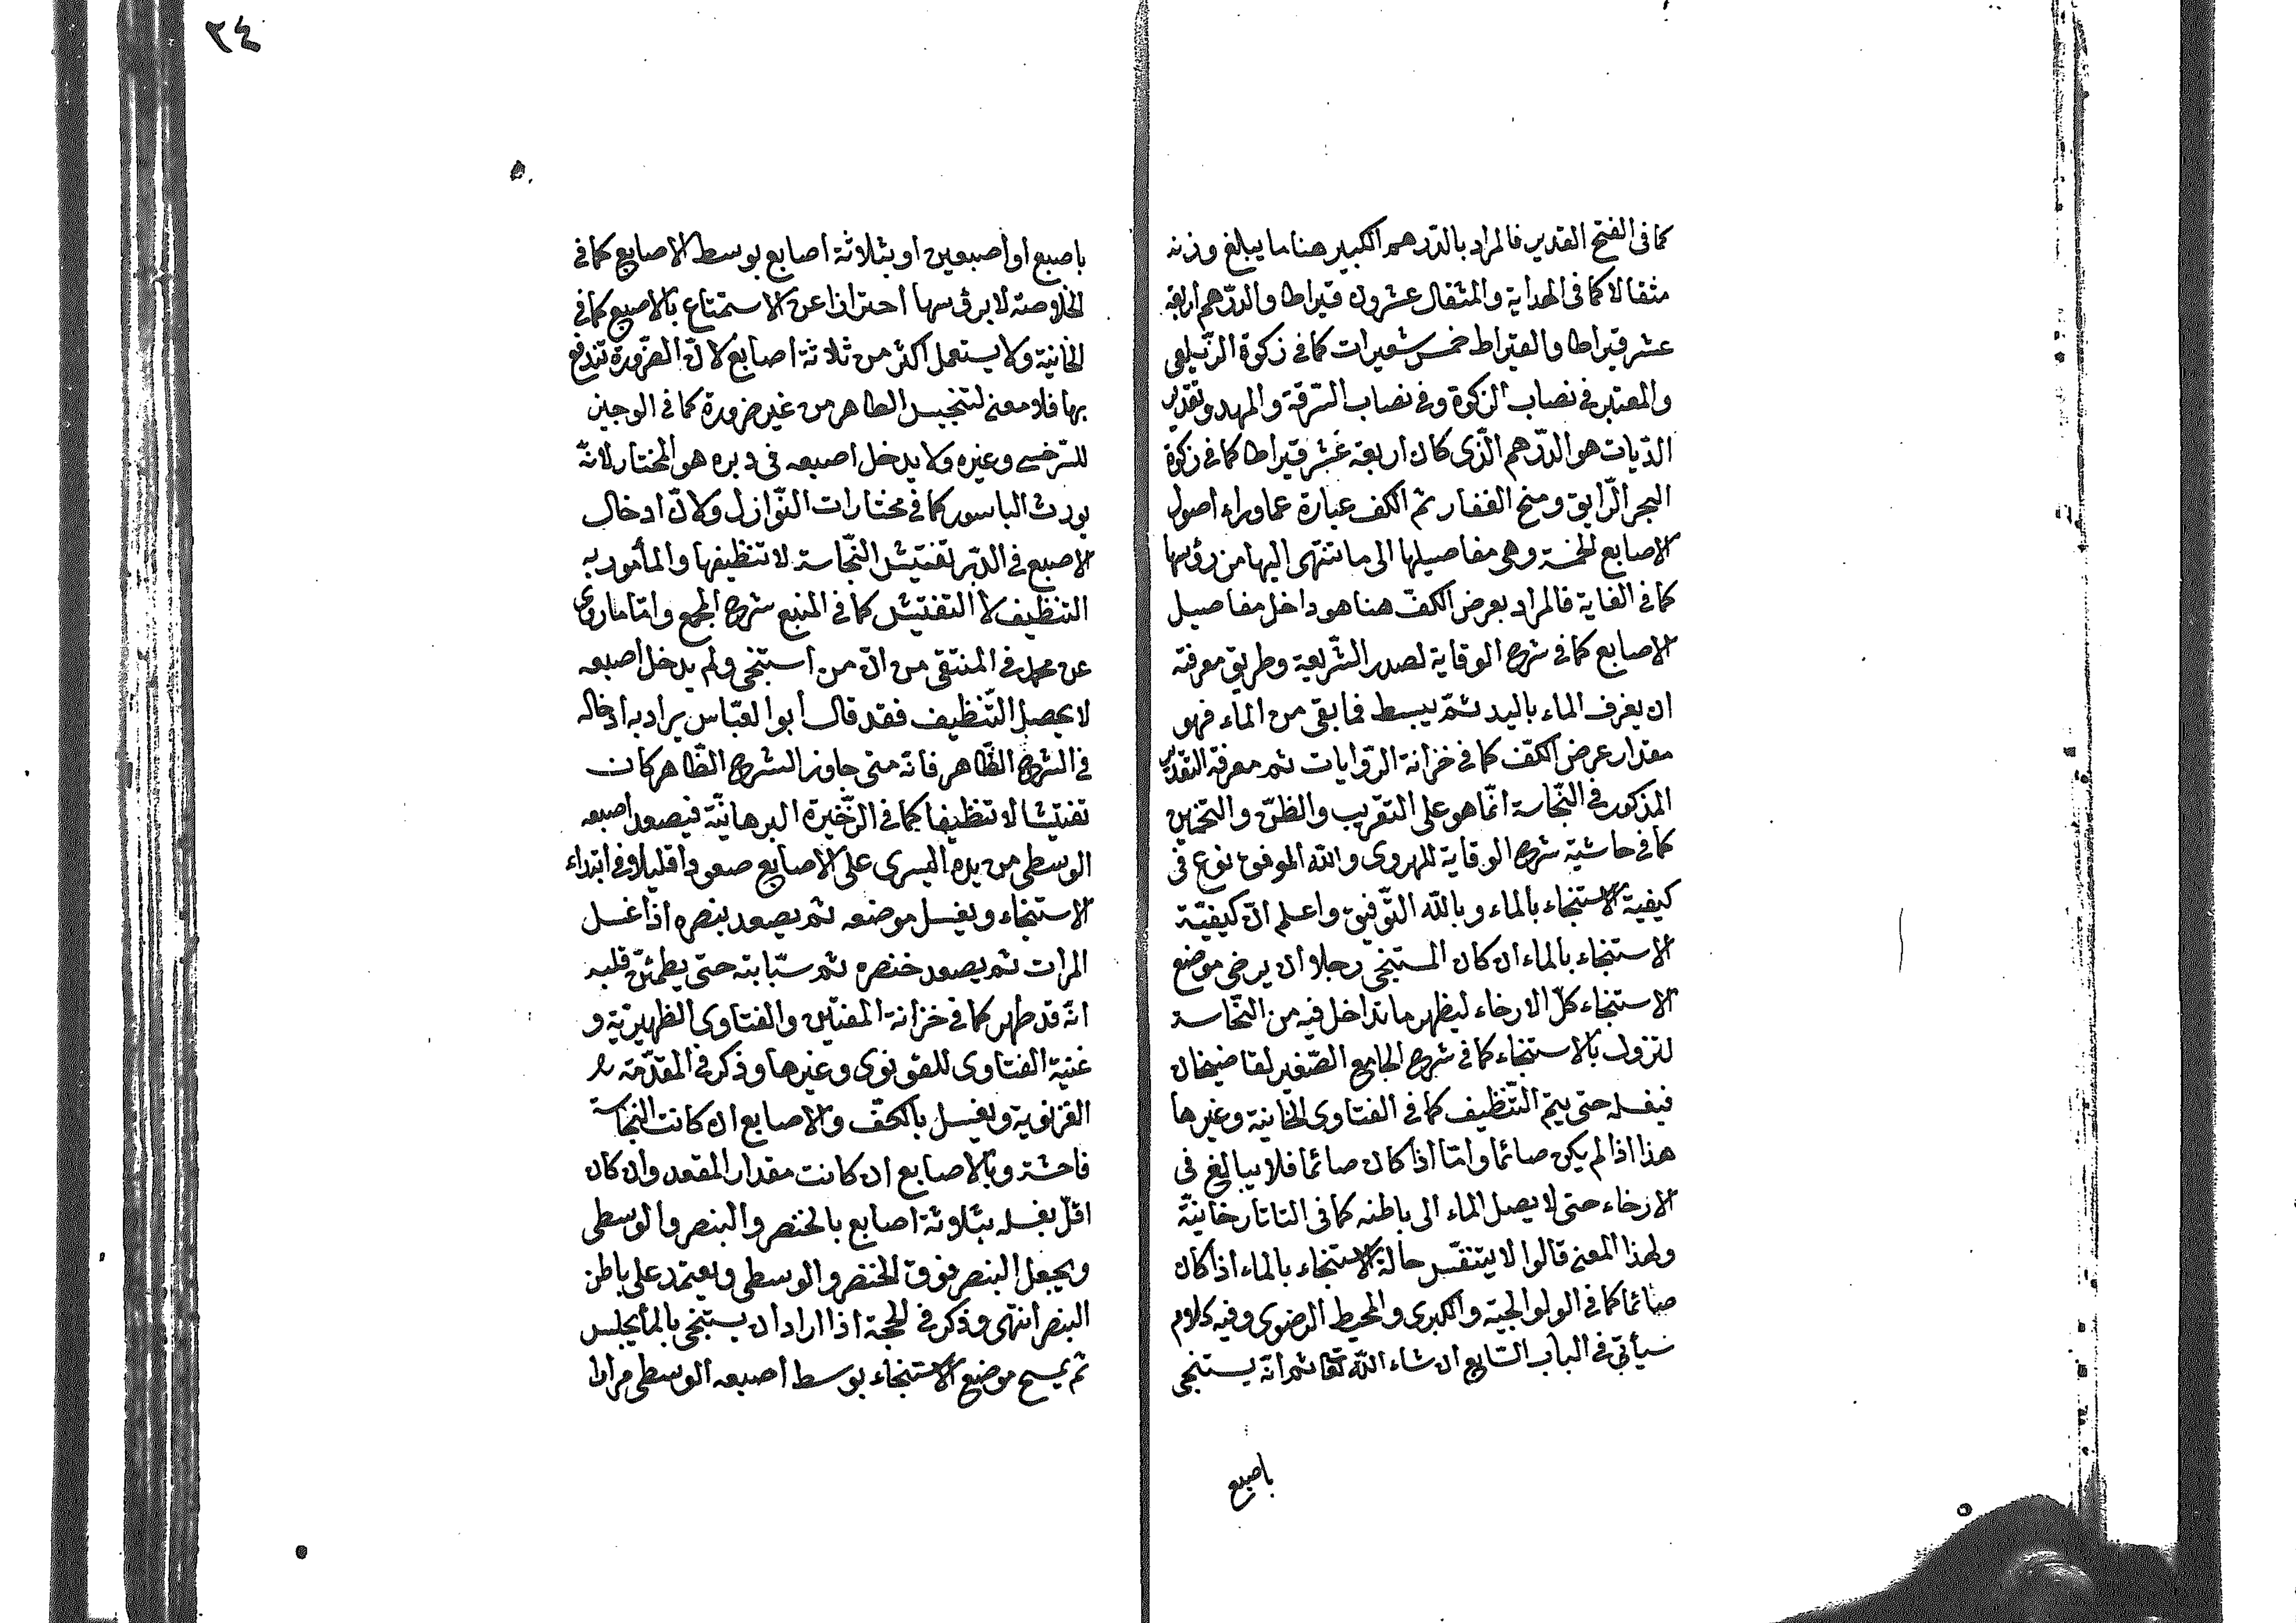 ٣٤
كما فى الفتح القدير فالمراد بالدّرهم الكبير هنا ما يبلغ وزنه
مثقالا كما فى الهداية والمثقال عشرون قيراطا والدّرهم اربعة
عشر قيراطا والقيراط خمس شعيرات كما فى زكوة الزّيلعى
والمعتبر فى نصاب الزكوة وفى نصاب السّرقة والمهر وتقدير
الدّيات هو الدّرهم الّذى كان اربعة عشر قيراطا كما فى زكوة
البحر الرّايق ومنح الغفار ثم الكف عبارة عما وراء اصول
الاصابع الخمسة وهى مفاصيلها الى ما تنتهى اليها من رؤسها
كما فى الغاية فالمراد بعرض الكفّ هنا هو داخل مفاصيل
الاصابع كما فى شرح الوقاية لصدر الشّريعة وطريق معرفته
ان يغرف الماء باليد ثمّ يبسط فما بقى من الماء فهو
مقدار عرض الكفّ كما فى خزانة الرّوايات ثم معرفة التقدير
المذكور فى النّجاسة انّما هو على التقريب والظنّ والتخمين
كما فى حاشية شرح الوقاية للهروى والله الموفق نوع فى
كيفية الاستنجاء بالماء وبالله التّوفيق واعلم انّ كيفيّة
الاستنجاء بالماء ان كان المستنجى رجلا ان يرخى موضع
الاستنجاء كلّ الارخاء ليظهر ما تداخل فيه من النّجاسة
لتزول بالاستنجاء كما فى شرح الجامع الصّغير لقاضيخان
فيغسله حتى يتمّ التّنظيف كما فى الفتاوى الخانية وغيرها
هذا اذا لم يكن صائما وامّا اذا كان صائما فلا يبالغ فى
الارخاء حتى لا يصل الماء الى باطنه كما فى التاتارخانيّة
ولهذا المعنى قالوا لا يتنفّس حالة الاستنجاء بالماء اذا كان
صائما كما فى الولوالجية والكبرى والمحيط الرضوى وفيه كلام
سيأتى فى الباب السّابع ان شاء الله تعا ثم انّه يستنجى
باصبع
باصبع او اصبعين او بثلاثة اصابع بوسط الاصابع كما فى
الخلاصة لا برؤسها احترازا عن الاستمتاع بالاصبع كما فى
الخانية ولا يستعمل اكثر من ثلاثة اصابع لانّ الضّرورة تندفع
بها فلا معنى لتنجيس الطاهر من غير ضرورة كما فى الوجيز
للسّرخسى وغيره ولا يدخل اصبعه فى دبره هو المختار لانّه
يورث الباسور كما فى مختارات النّوازل ولانّ ادخال
الاصبع فى الدّبر تفتيش النّجاسة لا تنظيفها والمأمور به
التنظيف لا التفتيش كما فى المنبع شرح المجمع وامّا ما روى
عن محمد فى المنتقى من انّ من استنجى ولم يدخل اصبعه
لا يحصل التّنظيف فقد قال ابو العبّاس يراد به ادخاله
فى الشرج الظّاهر فانّه متى جاوز الشرج الظّاهر كان
تفتيشا لا تنظيفا كما فى الذّخيرة البرهانيّة فيصعد اصبعه
الوسطى من يده اليسرى على الاصابع صعودا قليلا فى ابتداء
الاستنجاء ويغسل موضعه ثم يصعد بنصره اذا غسل
المرات ثم يصعد خنصره ثم سبّابته حتى يطمئنّ قلبه
انّه قد طهر كما فى خزانة المفتين والفتاوى الظهيريّة و
غنية الفتاوى للقونوى وغيرها وذكر فى المقدّمة
الغزنوية ويغسل بالكفّ والاصابع ان كانت النجاسة
فاحشة وبالاصابع ان كانت مقدار المقعد وان كان
اقلّ يغسله بثلاثة اصابع بالخنصر والبنصر والوسطى
ويجعل البنصر فوق الخنصر والوسطى ويعتمد على باطن
البنصر انتهى وذكر فى الحجة اذا اراد ان يستنجى بالماء يجلس
ثم يمسح موضع الاستنجاء بوسط اصبعه الوسطى مرارا